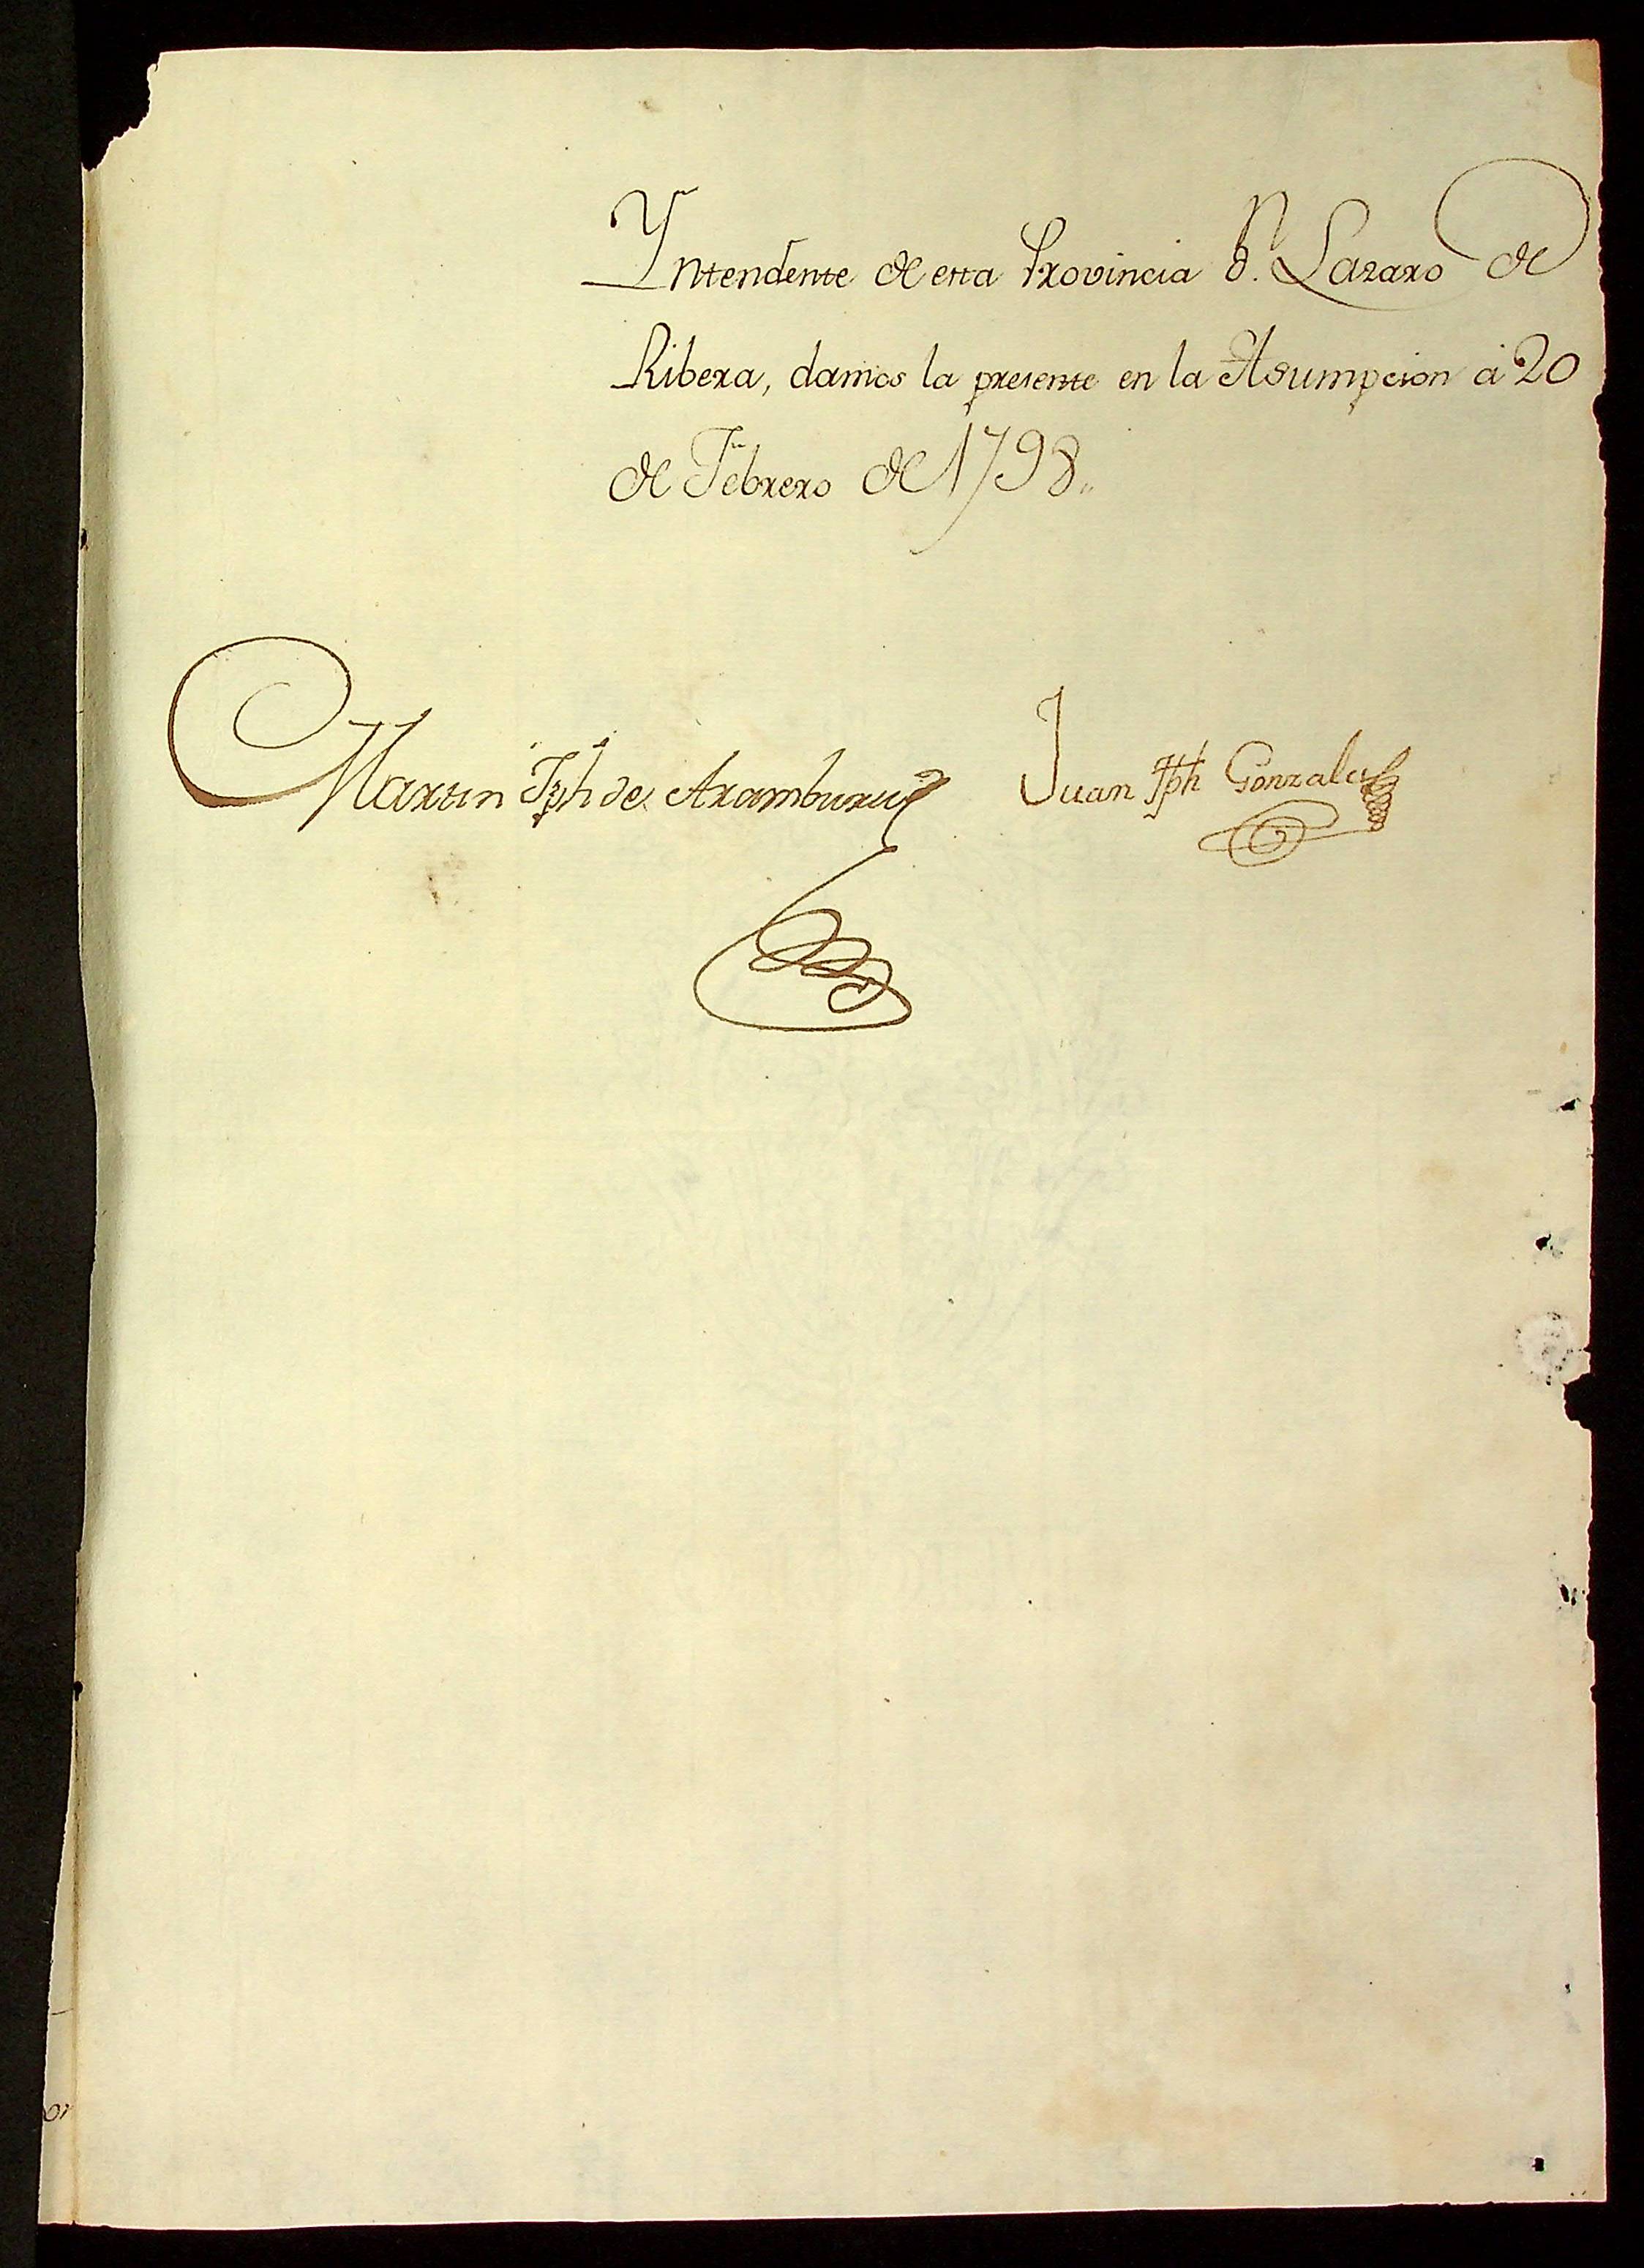 Yntendente de esta Provincia Dn. Lazaro de
Ribera, damos la presente en la Asumpcion á 20
de Febrero de 1798,,
Martin Jph de Aramburu
Juan Jph Gonzales